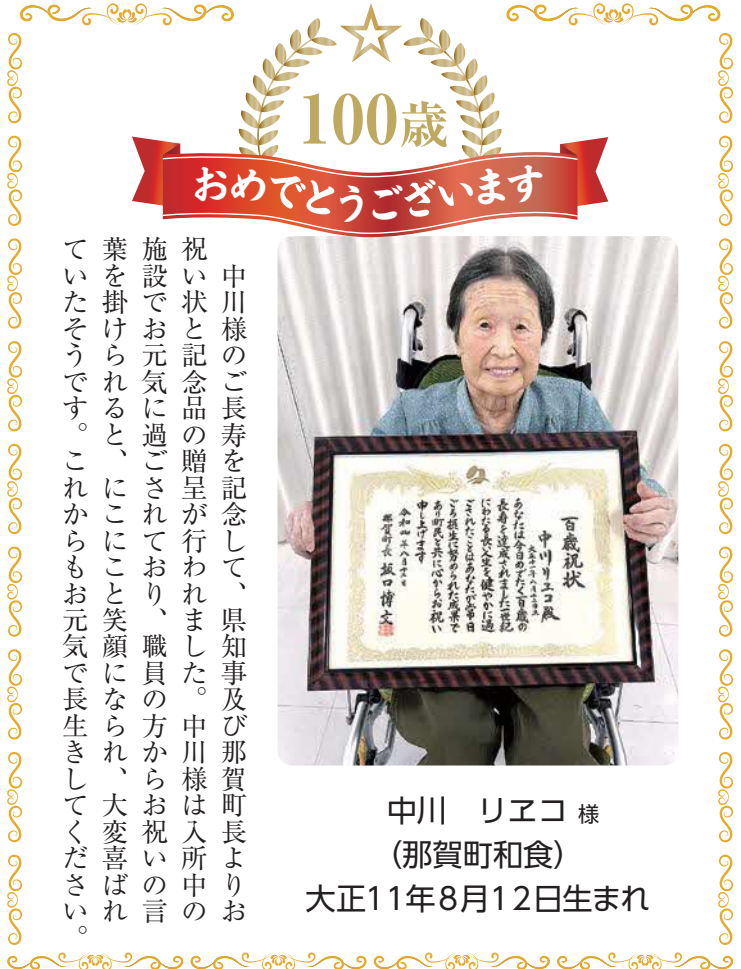 100歳
おめでとうございます
中川様のご長寿を記念して、県知事及び那賀町長よりお
祝い状と記念品の贈呈が行われました。中川様は入所中の
施設でお元気に過ごされており、職員の方からお祝いの言
葉を掛けられると、にこにこと笑顔になられ、大変喜ばれ
ていたそうです。これからもお元気で長生きしてください。
百歳祝状
中川リヱコ殿
あなたは今日めでたく百歳の
長寿を達成されました一世紀
にわたる長い人生を健やかに過
ごされたことはあなたが常日
ごろ摂生に努められた成果で
あり町民と共に心からお祝い
申し上げます
那賀町長 坂口博文
中川　リヱコ 様
（那賀町和食）
大正11年8月12日生まれ